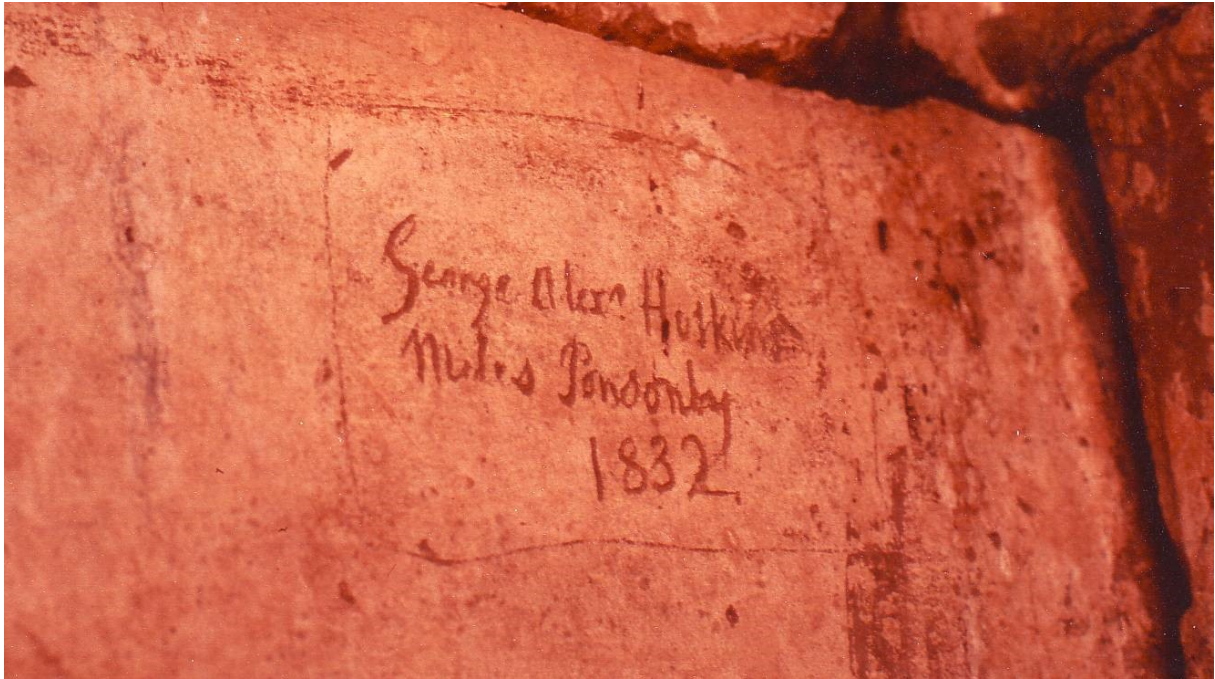 George Alexr Hoskins
Miles Ponsonby
1832